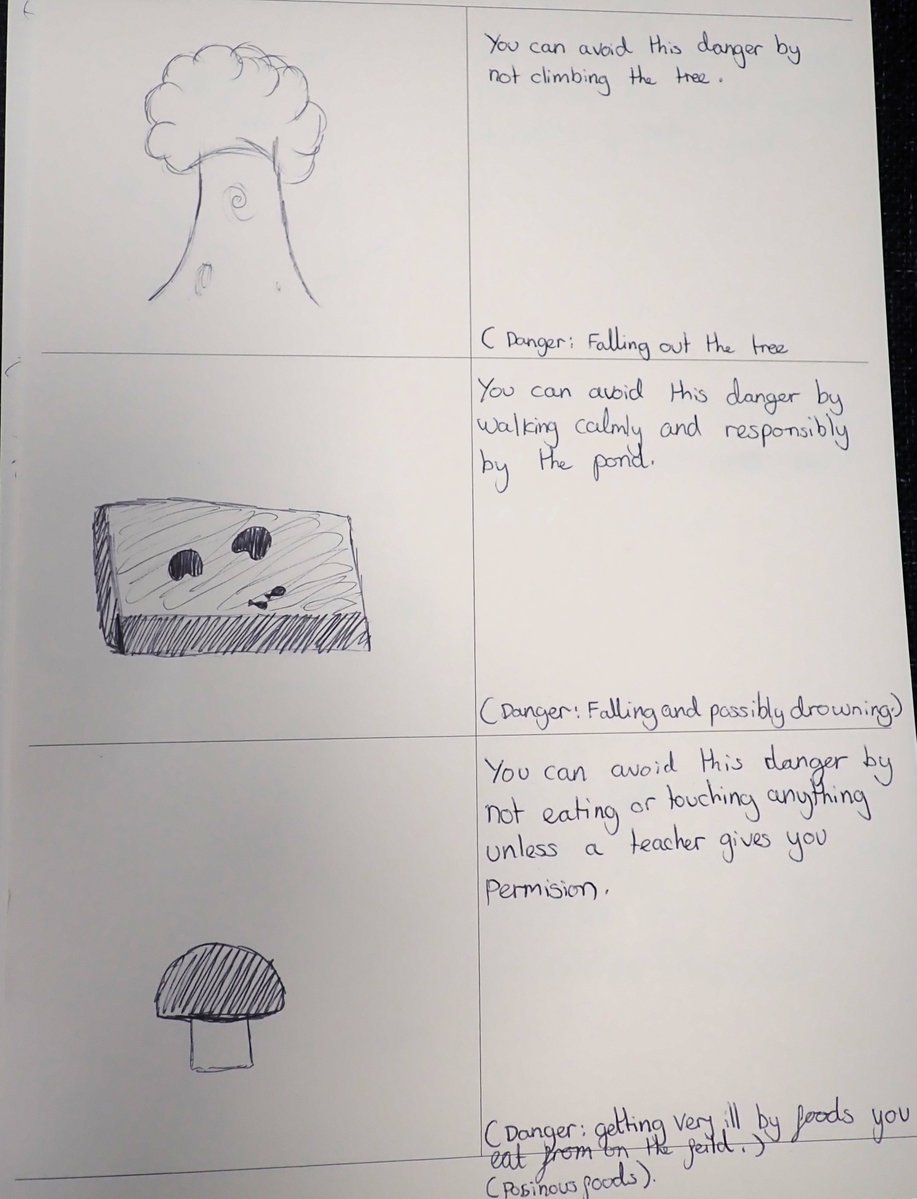 You can avoid this danger by
not climbing the tree.
( Danger: Falling out the tree
You can avoid this danger by
walking calmly and responsibly
by the pond.
(Danger: Falling and possibly drowning.)
You can avoid this danger by
not eating or touching anything
unless a teacher gives you
Permision.
(Danger: getting very ill by foods you
eat from on the feild.)
(Posinous foods).